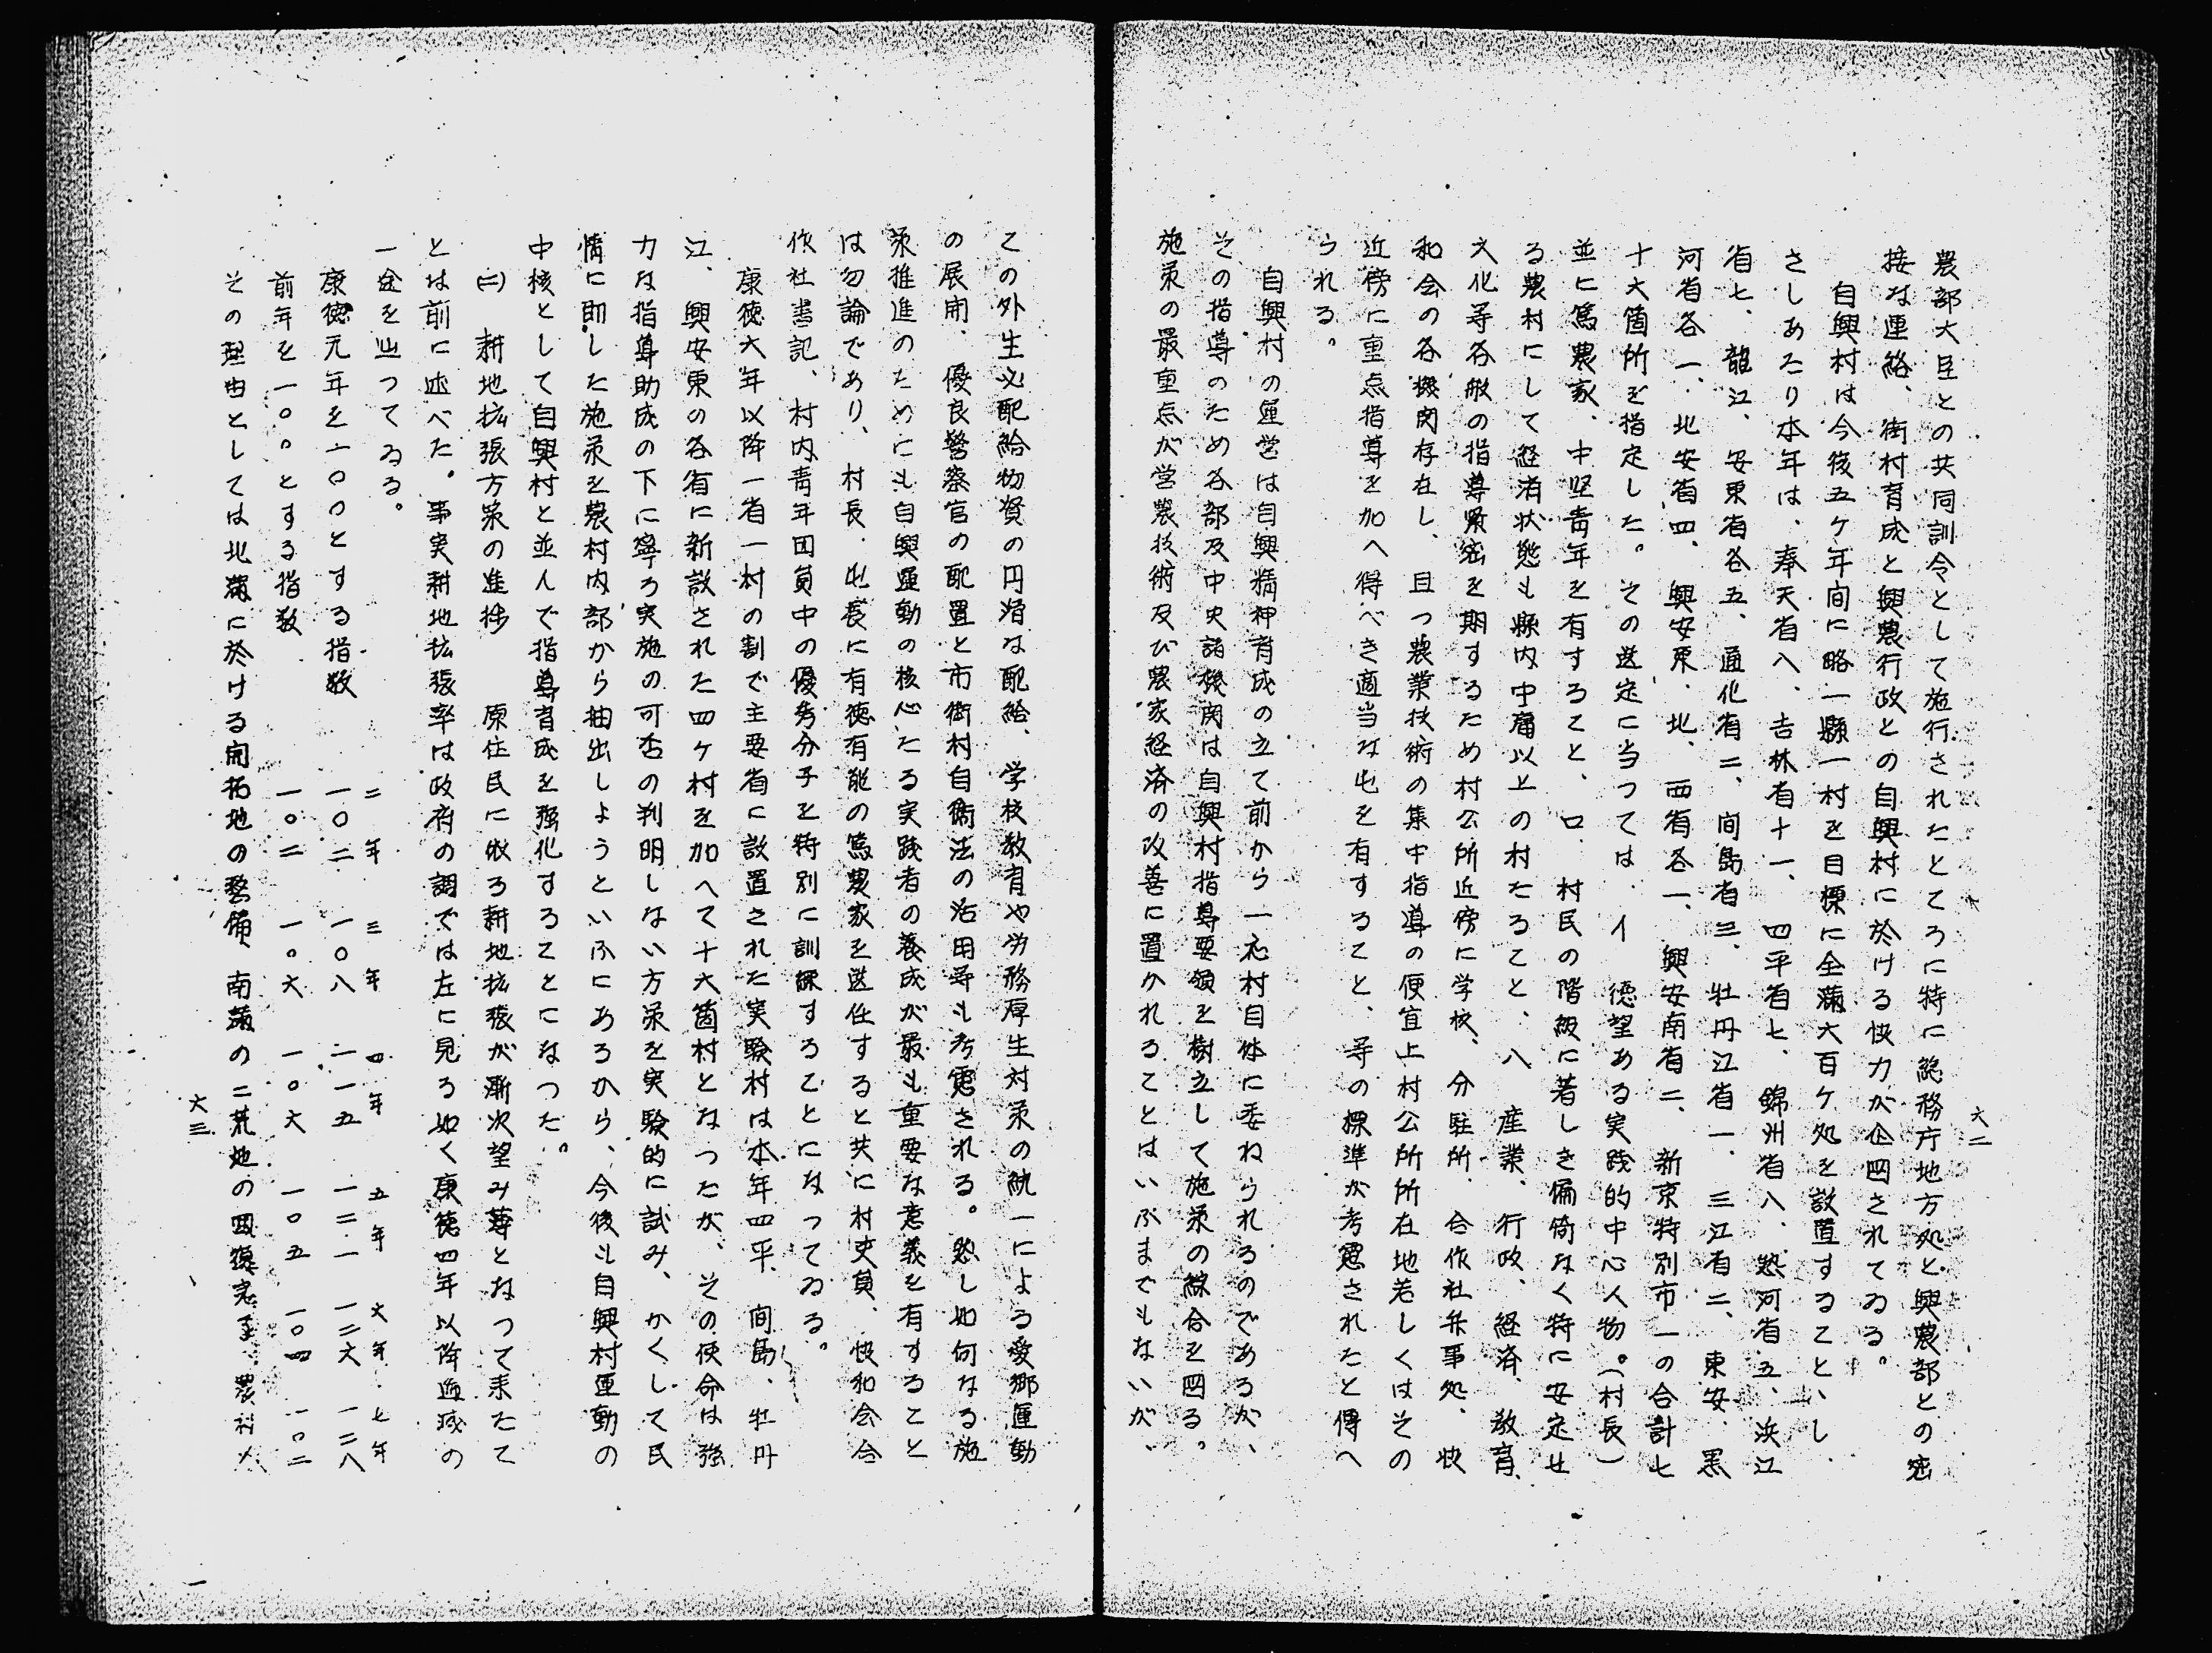 六二
農部大臣との共同訓令として施行されたところに特に総務庁地方処と興農部との密
接な連絡、街村育成と興農行政との自興村に於ける協力が企図されてゐる。
自興村は今後五ケ年間に略一縣一村を目標に全満六百ケ処を設置することゝし、
さしあたり本年は、奉天省八、吉林省十一、四平省七、錦州省八、熱河省五、浜江
省七、龍江、安東省各五、通化省二、間島省三、牡丹江省一、三江省二、東安、黒
河省各一、北安省四、興安東、北、西省各一、興安南省二、新京特別市一の合計七
十六箇所を指定した。その選定に当つては、イ 徳望ある実践的中心人物（村長）
並に篤農家、中堅青年を有すること、ロ、村民の階級に著しき偏倚なく特に安定せ
る農村にして経済状態も縣内中庸以上の村たること、ハ 産業、行政、経済、教育、
文化等各般の指導緊密を期するため村公所近傍に学校、分駐所、合作社弁事処、協
和会の各機関存在し、且つ農業技術の集中指導の便宜上村公所所在地若しくはその
近傍に重点指導を加へ得べき適当な屯を有すること、等の標準が考慮されたと傳へ
られる。
自興村の運営は自興精神育成の立て前から一応村自体に委ねられるのであるが、
その指導のため各部及中央諸機関は自興村指導要領を樹立して施策の綜合を図る。
施策の最重点が営農技術及び農家経済の改善に置かれることはいふまでもないが、
この外生必配給物資の円滑な配給、学校教育や労務厚生対策の統一による愛郷運動
の展開、優良警察官の配置と市街村自衛法の活用等も考慮される。然し如何なる施
策推進のためにも自興運動の核心たる実践者の養成が最も重要な意義を有すること
は勿論であり、村長、屯長に有徳有能の篤農家を選任すると共に村吏員、協和会合
作社書記、村内青年団員中の優秀分子を特別に訓練することになつてゐる。
康徳六年以降一省一村の割で主要省に設置された実験村は本年四平、間島、牡丹
江、興安東の各省に新設された四ケ村を加へて十六箇村となつたが、その使命は強
力な指導助成の下に寧ろ実施の可否の判明しない方策を実験的に試み、かくして民
情に即した施策を農村内部から抽出しようといふにあるから、今後も自興村運動の
中核として自興村と並んで指導育成を強化することになつた。
㈡ 耕地拡張方策の進捗 原住民に依る耕地拡張が漸次望み薄となつて来たこ
とは前に述べた。事実耕地拡張率は政府の調では左に見る如く康徳四年以降逓減の
一途を辿つてゐる。
二年 三年 四年 五年 六年 七年
康徳元年を一〇〇とする指数 一〇二 一〇八 一一五 一二一 一二六 一二八
前年を一〇〇とする指数 一〇二 一〇六 一〇六 一〇五 一〇四 一〇二
その理由としては北満に於ける開拓地の整備、南満の二荒地の回復完了、農村人
六三